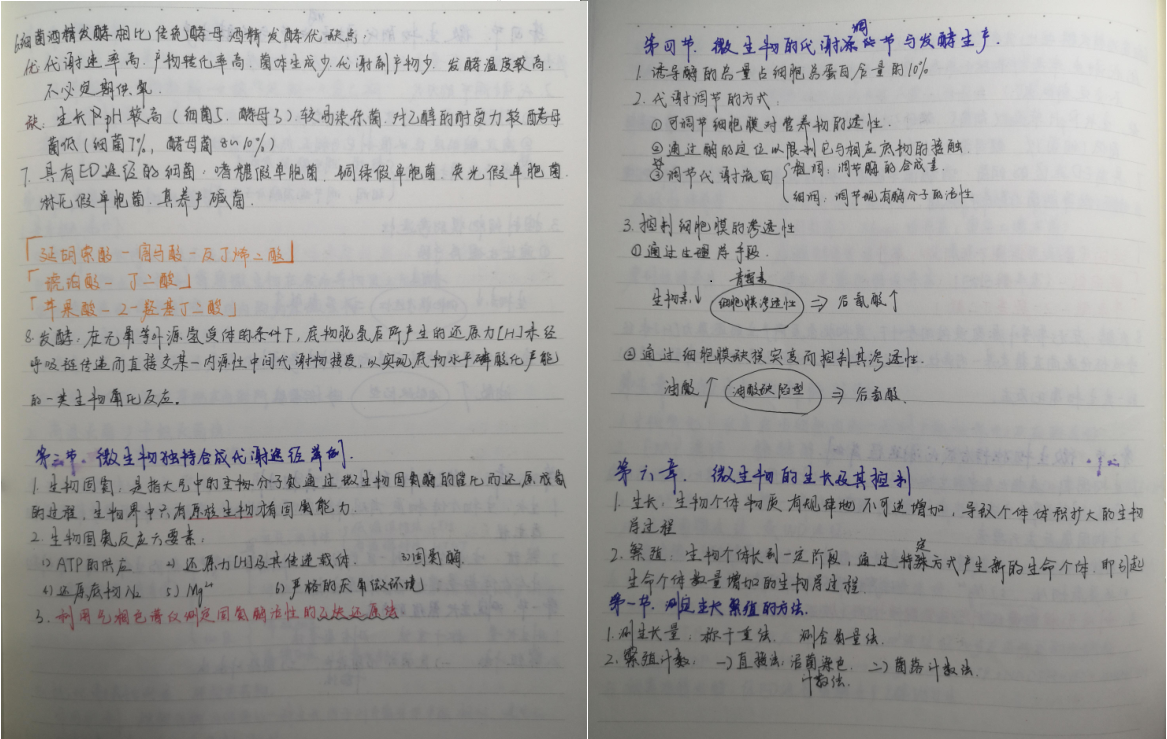 6.细菌酒精发酵相比传统酵母酒精发酵优缺点:
优.代谢速率高.产物转化率高.菌体生成少.代谢副产物少.发酵温度较高.
不必定期供氧.
缺.生长PH较高(细菌5.酵母3).较易染杂菌.对乙醇的耐受力较酵母
菌低(细菌7%,酵母菌8~10%)
7.具有ED途径的细菌:嗜糖假单胞菌.铜绿假单胞菌.荧光假单胞菌.
林氏假单胞菌.真养产碱菌.
「延胡索酸-富马酸-反丁烯二酸」
「琥珀酸-丁二酸」
「苹果酸-2-羟基丁二酸」
8.发酵:在无氧等外源氢受体的条件下,底物脱氢后所产生的还原力[H]未经
呼吸链传递而直接交某一内源性中间代谢物接受,以实现底物水平磷酸化产能
的一类生物氧化反应。
第三节.微生物独特合成代谢途径举例.
1.生物固氮:是指大气中的分子氮通过微生物固氮酶的催化而还原成氨
的过程,生物界中只有原核生物有固氮能力.
2.生物固氮反应六要素:
1)ATP的供应 2)还原力[H]及其传递载体. 3)固氮酶.
4)还原底物N₂ 5)Mg²⁺ 6)严格的厌氧微环境
3.利用气相色谱仪测定固氮酶活性的乙炔还原法
第四节.微生物的代谢调节与发酵生产.
1.诱导酶的总量占细胞总蛋白含量的10%
2.代谢调节的方式.
①可调节细胞膜对营养物的透性.
②通过酶的定位以限制它与相应底物的接触.
③调节代谢流向 粗调:调节酶的合成量
细调:调节现有酶分子的活性
3.控制细胞膜的渗透性
①通过生理学手段.
青霉素
生物素↓ 细胞膜渗透性 ⇒ 谷氨酸↑
②通过细胞膜缺损突变而控制其渗透性.
油酸↑ 油酸缺陷型 ⇒ 谷氨酸.
第六章.微生物的生长及其控制
1.生长:生物个体物质有规律地不可逆增加,导致个体体积扩大的生物
学过程
2.繁殖:生物个体长到一定阶段,通过特定方式产生新的生命个体,即引起
生命个体数量增加的生物学过程.
第一节.测定生长繁殖的方法.
1.测生长量:称干重法. 测含氮量法.
2.繁殖计数. 一)直接法:活菌染色 二)菌落计数法.
计数法.